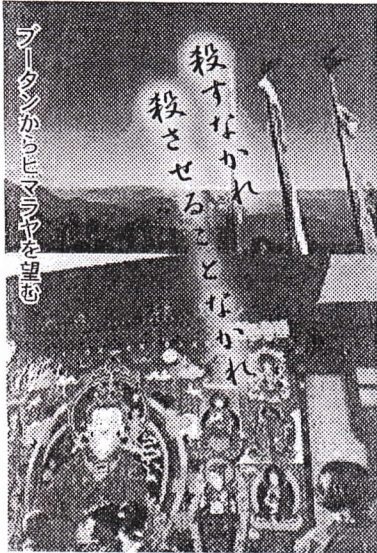 殺すなかれ
殺させることなかれ
ブータンからヒマラヤを望む